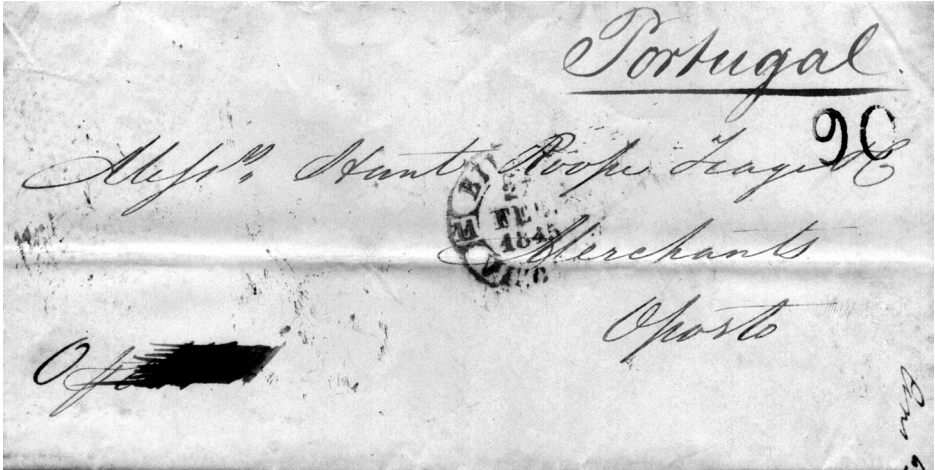 Portugal
90
Messrs. Hunt Roope Teage & C
FEV
1845
Merchants
Oporto